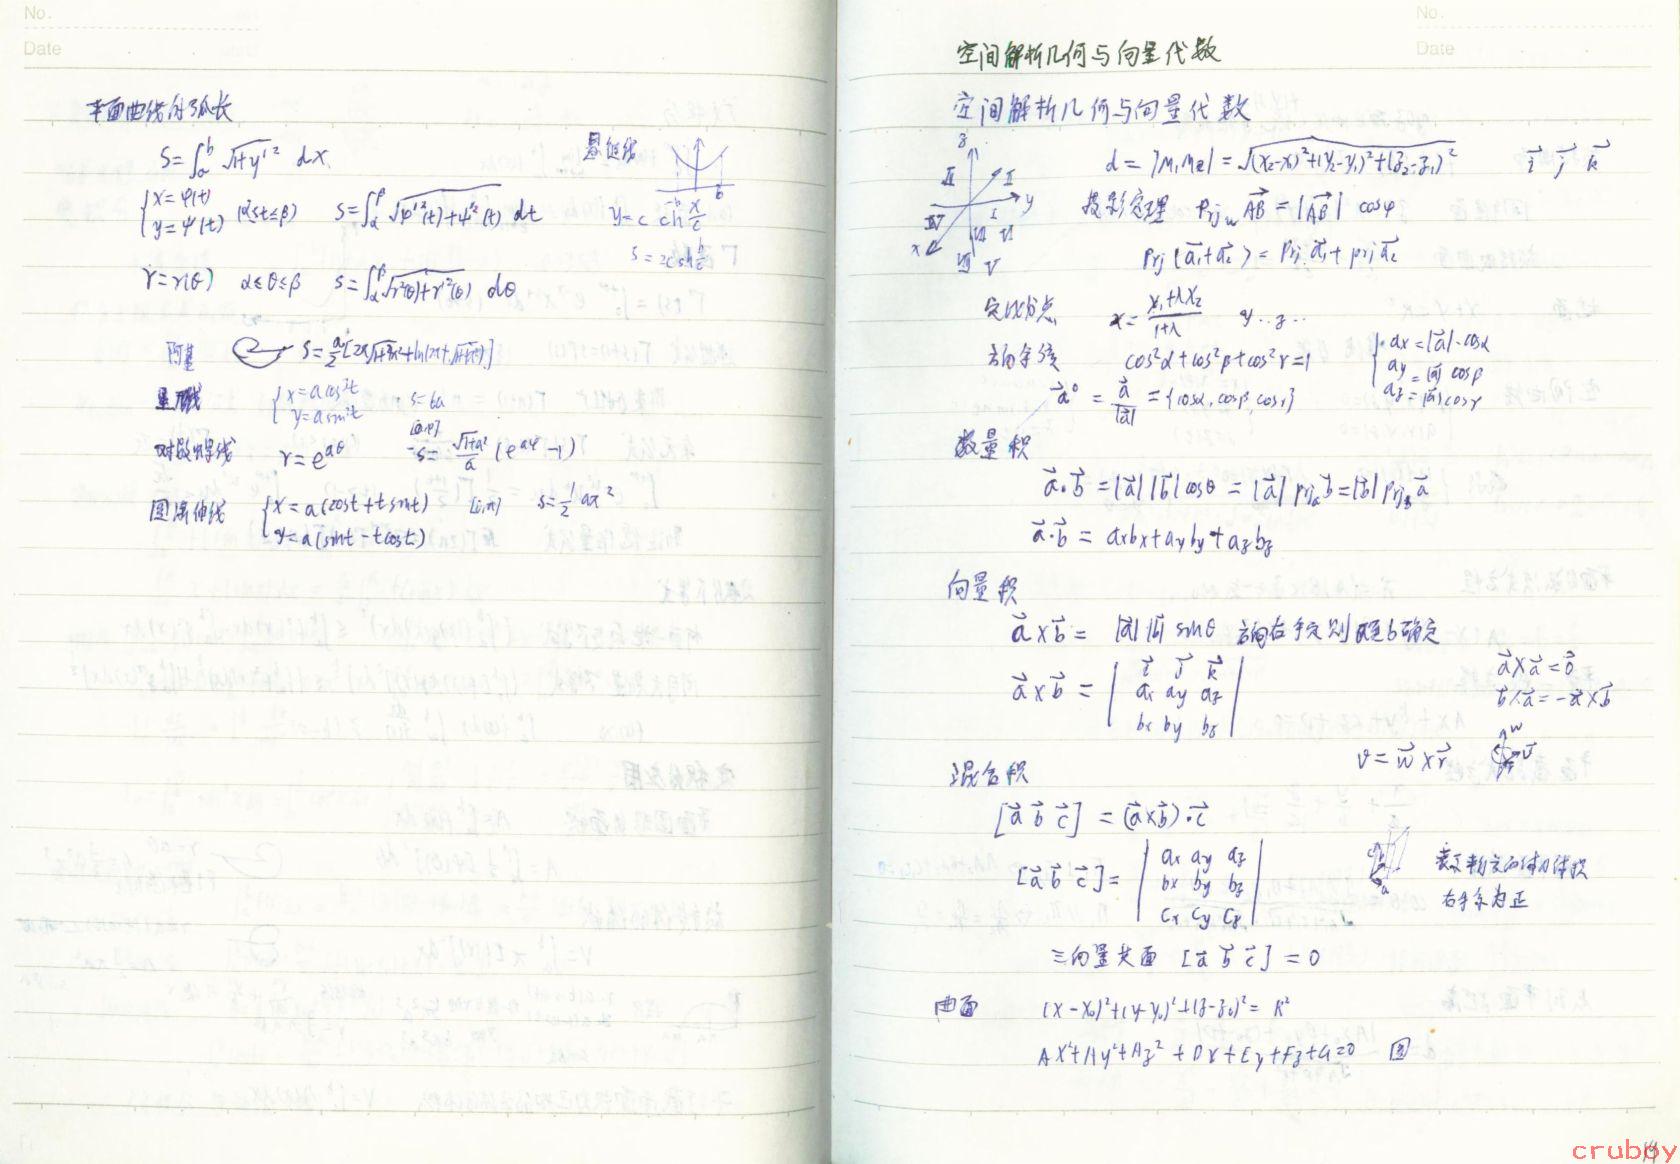 No.
Date
平面曲线的弧长
S=∫ₐᵇ √1+y'² dx
悬链线
-b b
{x=φ(t) y=ψ(t) (α≤t≤β) S=∫_α^β √φ'²(t)+ψ'²(t) dt
y=c ch x/c
s=2c sh b/c
r=r(θ) α≤θ≤β S=∫_α^β √r²(θ)+r'²(θ) dθ
阿基 S=a/2[2π√1+4π²+ln(2π+√1+4π²)]
星形线 {x=acos³t y=asin³t s=6a
对数螺线 r=e^{aθ} [0,φ] S=√1+a²/a (e^{aφ}-1)
圆渐伸线 {x=a(cost+tsint) y=a(sint-tcost) [0,π] S=1/2 aπ²
No.
Date
空间解析几何与向量代数
空间解析几何与向量代数
z y x
d=|M₁M₂|=√(x₂-x₁)²+(y₂-y₁)²+(z₂-z₁)² i⃗ j⃗ k⃗
投影定理 Prj_u AB⃗=|AB⃗| cosφ
Prj(a⃗₁+a⃗₂)=Prj a⃗₁+prj a⃗₂
定比分点 x=x₁+λx₂/1+λ y.. z..
方向余弦 cos²α+cos²β+cos²γ=1
{ax=|a⃗|·cosα
ay=|a⃗| cosβ
az=|a⃗| cosγ
a⃗⁰=a⃗/|a⃗|={cosα, cosβ, cosγ}
数量积
a⃗·b⃗=|a⃗||b⃗|cosθ=|a⃗| prjₐb⃗=|b⃗| Prj_b a⃗
a⃗·b⃗=axbx+ayby+azbz
向量积
a⃗×b⃗= |a⃗||b⃗| sinθ 方向右手定则 确定
a⃗×b⃗=| i⃗ j⃗ k⃗
ax ay az
bx by bz |
a⃗×a⃗=0⃗
b⃗×a⃗=-a⃗×b⃗
v=w⃗×r⃗
混合积
[a⃗ b⃗ c⃗]=(a⃗×b⃗)·c⃗
[a⃗ b⃗ c⃗]=| ax ay az
bx by bz
cx cy cz |
表示 体积
右手系为正
三向量共面 [a⃗ b⃗ c⃗]=0
曲面 (x-x₀)²+(y-y₀)²+(z-z₀)²=R²
Ax²+Ay²+Az²+Dx+Ey+Fz+G=0 圆
14
cruboy